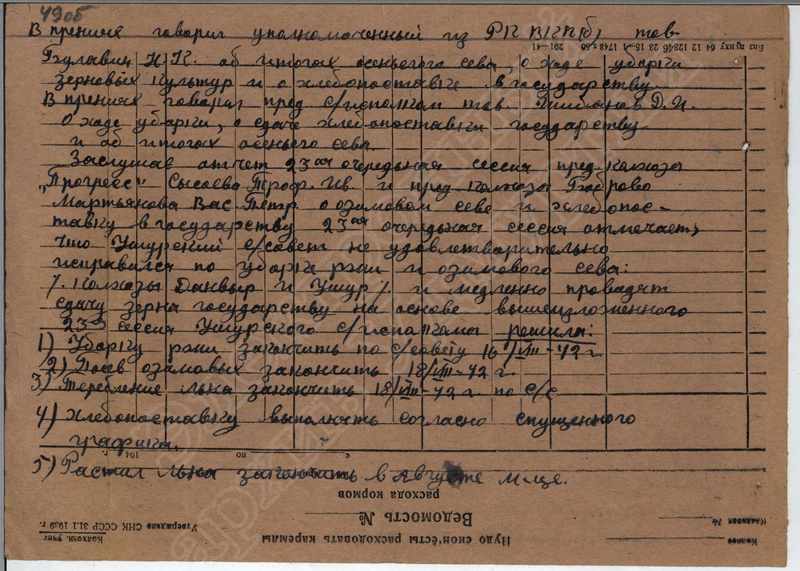 49об
В прениях говорил уполномоченный из РК ВКП(б) тов-
Булавин Н.К. об итогах осеннего сева, о ходе уборки
зерновых культур и о хлебопоставке в государству.
В прениях говорил пред с/исполком тов. Д.И.
О ходе уборки, о сдаче хлебопоставки государству
и об итогах осеннего сева.
Заслушав отчет 23ая очередьная сессия пред. колхоза
"Прогресс" Сысоева Троф. Ив. и пред колхоза Боброво
Мартьянова Вас Петр о озимовом севе и хлебопос-
тавку в государству 23ая очередьная сессия отмечает,
что Ушурский с/совет не удовлетворительно
исправился по уборки ржи и озимового сева:
/. колхозы и Ушур /. и медленно проводят
сдачу зерна государству на основе вышеизложенного
23ая сессия Ушурского с/исполкома решила:
1) Уборку ржи закончить по с/совету 16/VIII-42 г.
2) Посев озимовых закончить 18/VIII-42 г.
3) Теребление льна закончить 18/VIII-42 г. по с/с
4) Хлебопоставку выполнять согласно спущенного
графика.
5) Растил льна закончить в августе м-це.
расхода кормов
Ведомость №
Нудо скон'ёсты расходовать каремлы
Утверждено СНК СССР 31.1 1939 г.
Колхозн. учет
Колхоз